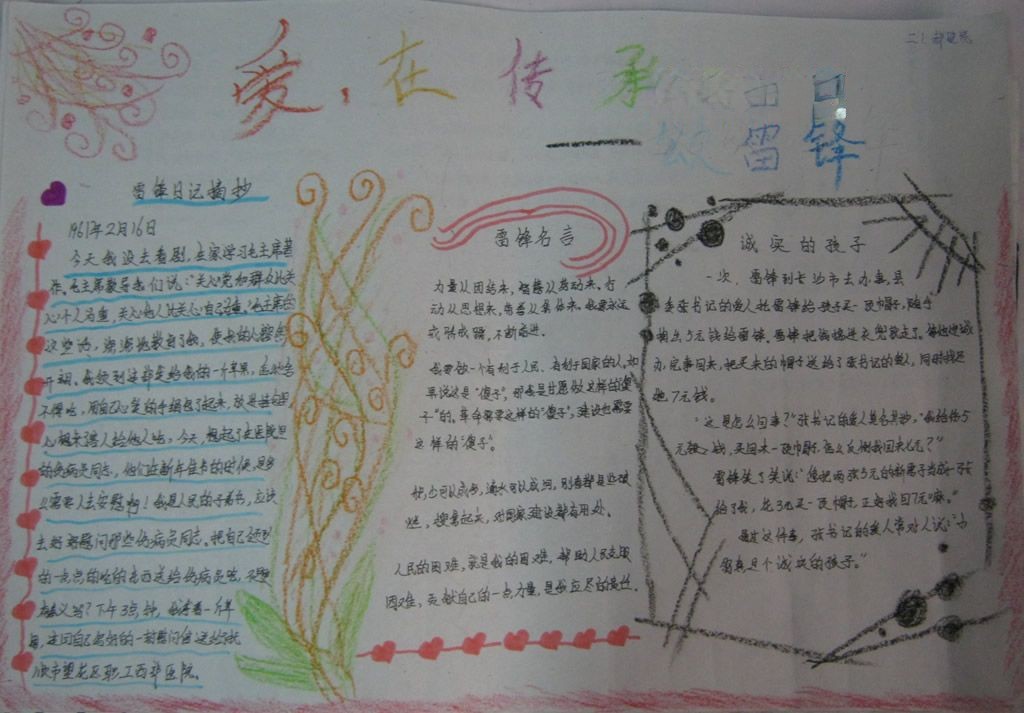 二1
爱，在传承
雷锋
雷锋日记摘抄
1961年2月16日
今天我没去看剧，在家学习毛主席著
作。毛主席教导我们说：“关心党和群众比关
心个人为重，关心他人比关心自己为重。”毛主席的
这些话，
不得吃，用自己心爱的手绢包了起来，
心想来客人给他人吃。今天，想起了在医院里
的伤病员同志，他们在新年佳节的时候，
需要人去安慰啊！我是人民的子弟兵，应该
去好好慰问那些伤病员同志。把自己
的一点点的吃的东西送给伤病员吃，
意义吗？下午3点钟，我拿着一斤苹
果，连同自己写好的一封慰问信送给抚
顺市望花区职工西部医院。
雷锋名言
力量从团结来，智慧从劳动来，行
动从思想来，荣誉从集体来。我要永远
戒骄戒躁，不断前进。
我要做一个有利于人民、有利于国家的人，如
果说这是“傻子”，那我是甘愿做这样的“傻
子”的，革命需要这样的“傻子”，建设也需要
这样的“傻子”。
可以成布，滴水可以成河，别看都是些破
烂，捡拿起来，对国家建设都有用处。
人民的困难，就是我的困难，帮助人民克服
困难，贡献自己的一点力量，是我应尽的责任。
诚实的孩子
一次，雷锋到长沙市去办事，县
委张书记的爱人托雷锋给孩子买一顶帽子，随手
掏出5元钱给雷锋。雷锋把钱揣进衣兜就走了。等他进城
办完事回来，把买来的帽子送给了张书记的爱人，同时找还
她7元钱。
“这是怎么回事？”张书记的爱人莫名其妙，“我给你5
元钱，买回来一顶帽子，怎么反倒找回来7元？”
雷锋笑了笑说：“您把两张5元的新票子当成一张
给了我，花3元买一顶帽子，正好找回7元嘛。”
通过这件事，张书记的爱人常对人说：“小
雷真是个诚实的孩子。”